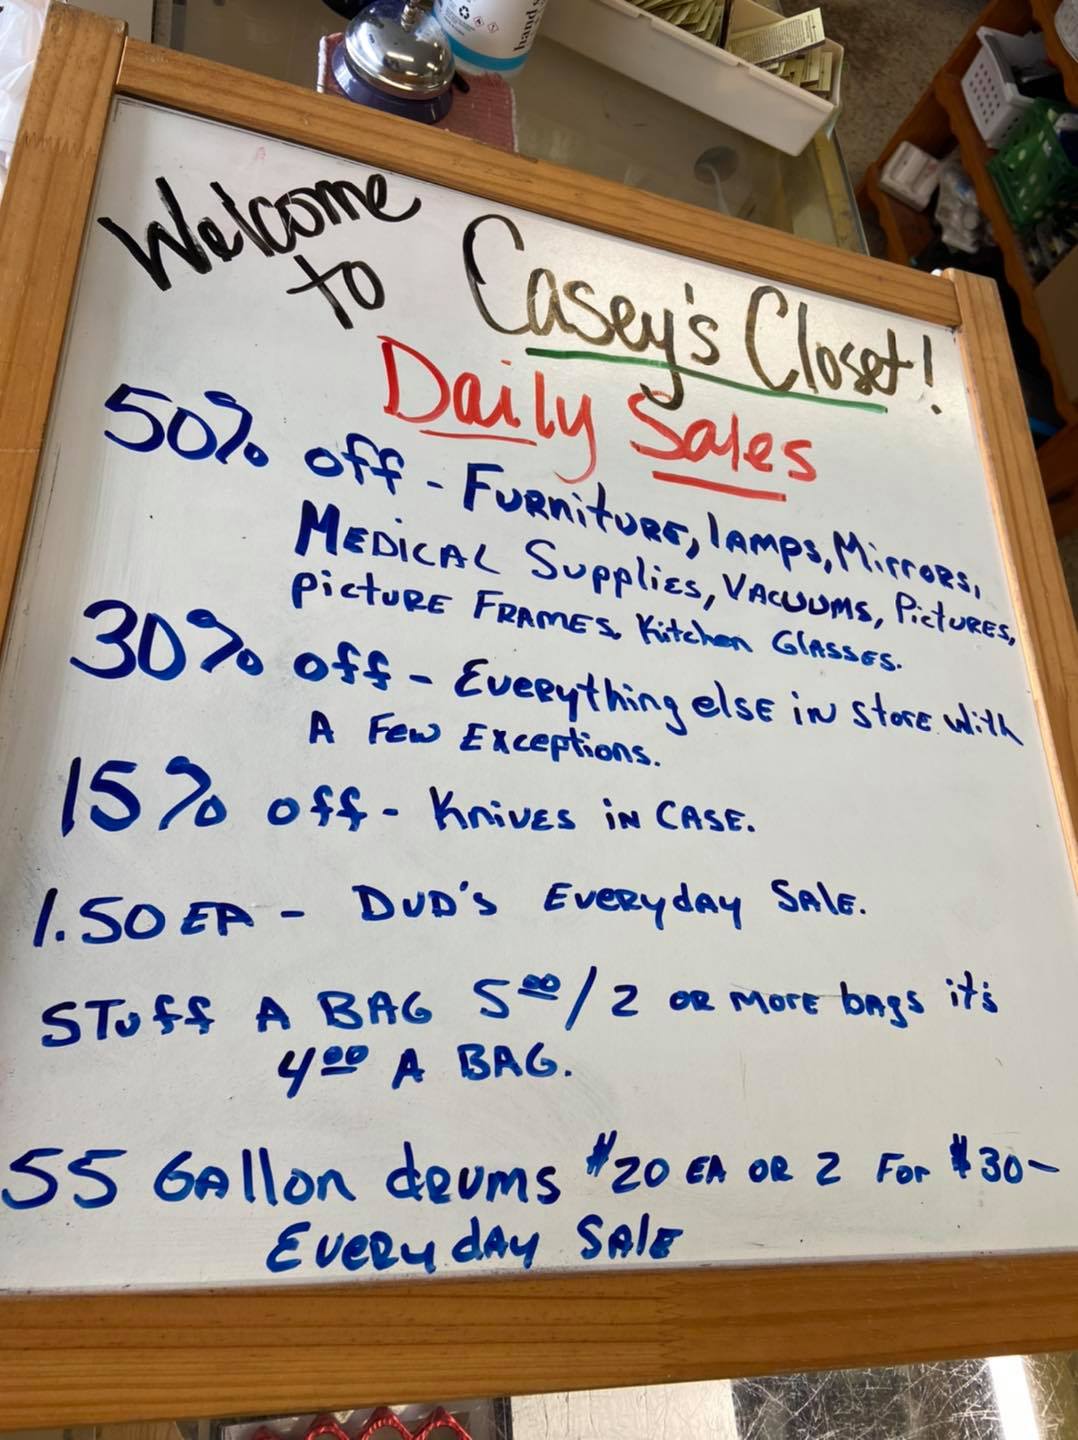 hand s
Welcome to Casey's Closet!
Daily Sales
50% off - FURNiTURE, lAMPS, MirrORS,
MEDICAL Supplies, VACUUMS, PicTURES,
picTURE FRAMES, KitcheN GlASSES.
30% off - EveRythiNg else iN store with
A Few Exceptions.
15% off - KNiVES iN CASE.
1.50 EA - DVD'S EVERYdAY SAlE.
STuff A BAG 5⁰⁰/2 OR MORE bAgs it's
4⁰⁰ A BAG.
55 GAllon dRUMS $20 EA OR 2 For $30-
EVERYdAY SAlE